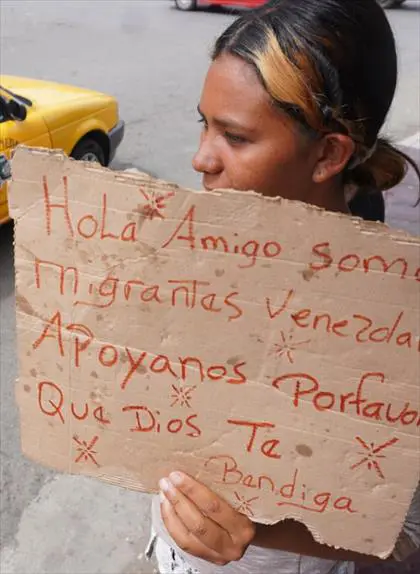 Hola Amigo som
migrantas Venezola
Apoyanos Porfavor
Que Dios Te
Bendiga